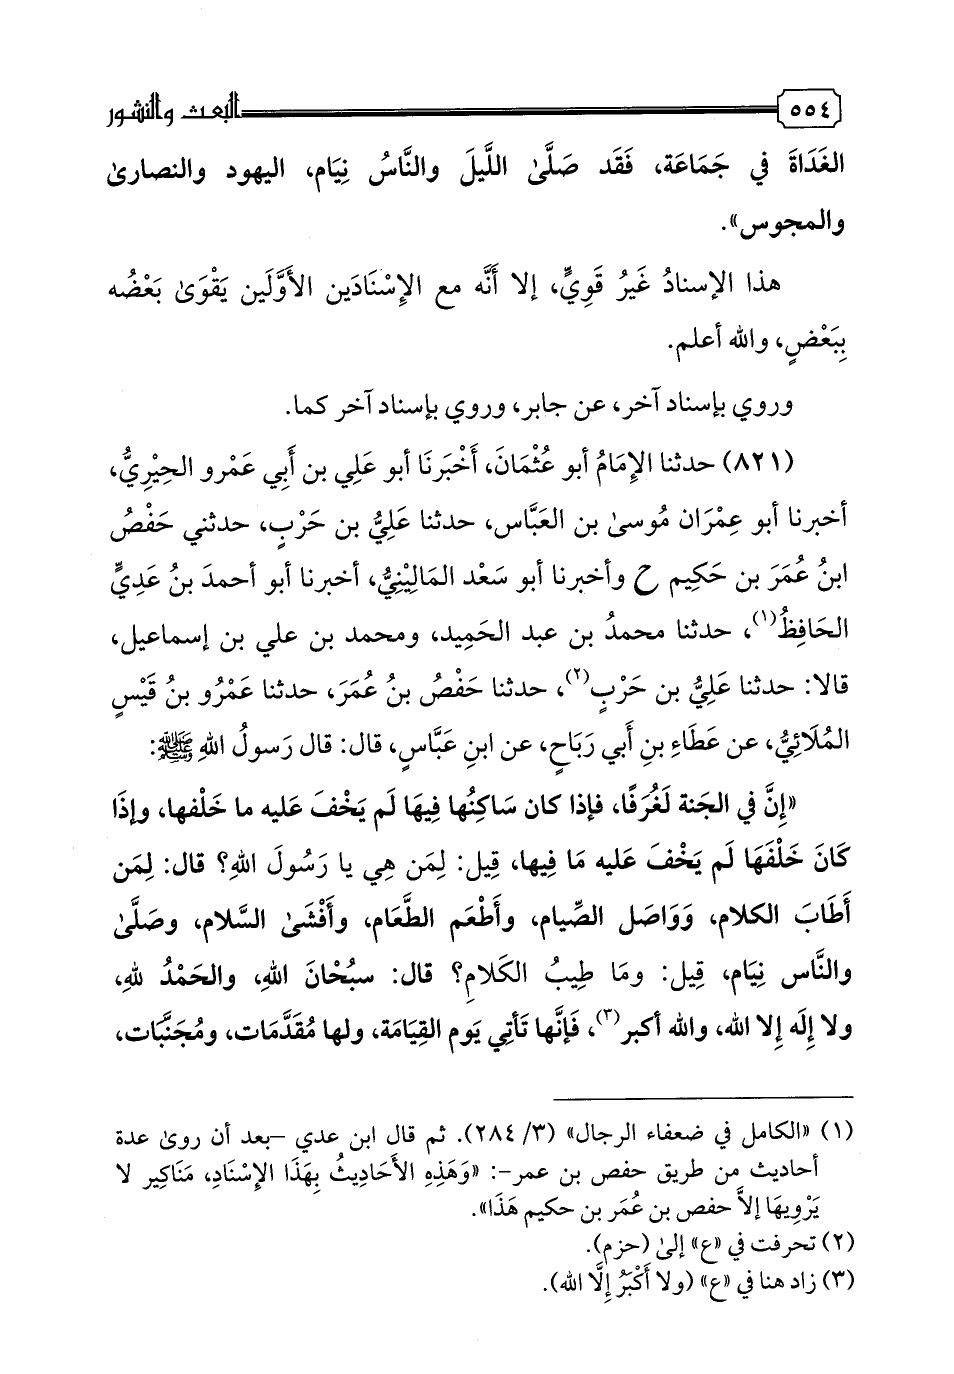 ٥٥٤ البعث والنشور
الغَدَاةَ في جَمَاعَة، فَقَد صَلَّىٰ اللَّيلَ والنَّاسُ نِيَام، اليهود والنصارىٰ
والمجوس».
هذا الإسنادُ غَيرُ قَوِيٍّ، إلا أنَّه مع الإسْنَادَين الأَوَّلَين يَقْوَىٰ بَعْضُه
بِبَعْضٍ، والله أعلم.
وروي بإسناد آخر، عن جابر، وروي بإسناد آخر كما.
(٨٢١) حدثنا الإمَامُ أبو عُثْمَانَ، أَخْبَرنَا أبو عَلِي بن أَبِي عَمْرو الحِيْرِيُّ،
أخبرنا أبو عِمْرَان مُوسىٰ بن العَبَّاس، حدثنا عَلِيُّ بن حَرْبٍ، حدثني حَفْصُ
ابنُ عُمَرَ بن حَكِيم ح وأخبرنا أبو سَعْد المَالِينِيُّ، أخبرنا أبو أحمدَ بنُ عَدِيٍّ
الحَافِظُ(١)، حدثنا محمدُ بن عبد الحَمِيد، ومحمد بن علي بن إسماعيل،
قالا: حدثنا عَلِيُّ بن حَرْبٍ(٢)، حدثنا حَفْصُ بنُ عُمَرَ، حدثنا عَمْرُو بنُ قَيْسٍ
المُلَائِيُّ، عن عَطَاءِ بنِ أبي رَبَاحٍ، عن ابنِ عَبَّاسٍ، قال: قال رَسولُ اللهِ ﷺ:
«إِنَّ في الجَنة لَغُرَفًا، فإذا كان سَاكِنُها فِيهَا لَم يَخْفَ عَليه ما خَلْفها، وإذَا
كَانَ خَلْفَهَا لَم يَخْفَ عَليه مَا فِيها، قِيل: لِمَن هِي يا رَسُولَ اللهِ؟ قال: لِمَن
أَطَابَ الكلام، وَوَاصَل الصِّيام، وأَطْعَم الطَّعَام، وأَفْشَىٰ السَّلام، وصَلَّىٰ
والنَّاس نِيَام، قِيل: ومَا طِيبُ الكَلامِ؟ قال: سبُحْانَ اللهِ، والحَمْدُ للهِ،
ولا إِلَه إِلا الله، والله أكبر(٣)، فَإنَّها تَأتِي يَوم القِيَامَة، ولها مُقَدَّمَات، ومُجَنَّبَات،
(١) «الكامل في ضعفاء الرجال» (٣/ ٢٨٤). ثم قال ابن عدي -بعد أن روىٰ عدة
أحاديث من طريق حفص بن عمر-: «وَهَذِهِ الأَحَادِيثُ بِهَذَا الإِسْنَادِ، مَنَاكِير لا
يَرْوِيهَا إلاَّ حفص بن عُمَر بن حكيم هَذَا».
(٢) تحرفت في «ع» إلىٰ (حزم).
(٣) زاد هنا في «ع» (ولا أَكْبَرُ إِلَّا الله).